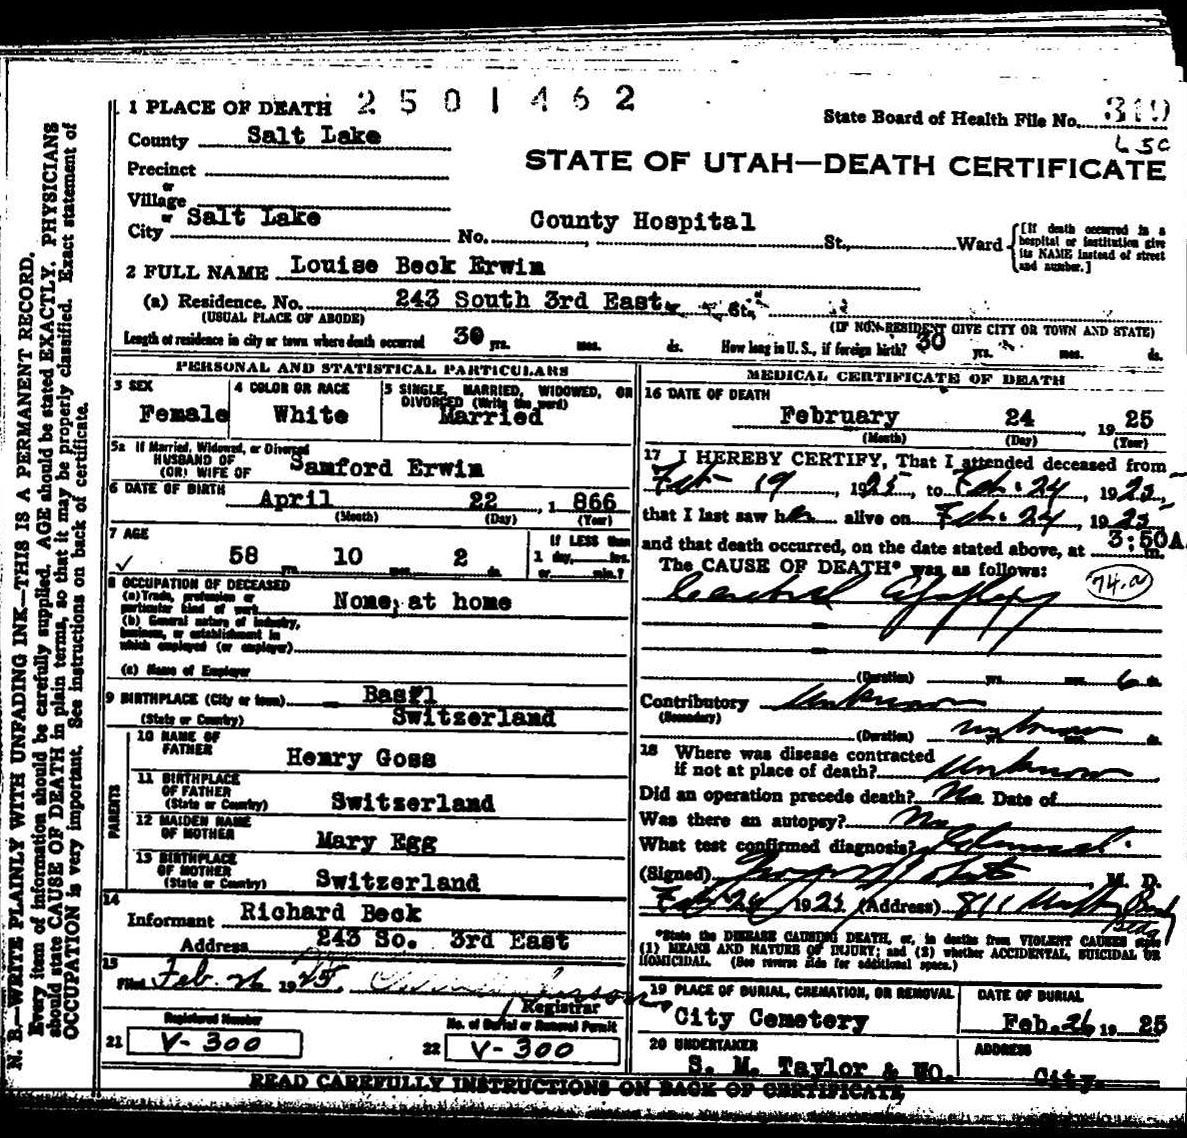 1 PLACE OF DEATH 2501462
State Board of Health File No. 310
County Salt Lake
STATE OF UTAH—DEATH CERTIFICATE
Precinct
or
Village
or
City Salt Lake No. County Hospital St., Ward
[If death occurred in a hospital or institution give its NAME instead of street and number.]
2 FULL NAME Louise Beck Erwin
(a) Residence. No. 243 South 3rd East St.
(USUAL PLACE OF ABODE) (IF NON-RESIDENT GIVE CITY OR TOWN AND STATE)
Length of residence in city or town where death occurred 30 yrs. mos. ds. How long in U. S., if foreign birth? 30 yrs. mos. ds.
PERSONAL AND STATISTICAL PARTICULARS
3 SEX
Female
4 COLOR OR RACE
White
5 SINGLE, MARRIED, WIDOWED, OR
DIVORCED (Write the word)
Married
5a If Married, Widowed, or Divorced
HUSBAND OF
(OR) WIFE OF Samford Erwin
6 DATE OF BIRTH April 22, 1866
(Month) (Day) (Year)
7 AGE
58 yrs. 10 mos. 2 ds.
If LESS than
1 day, hrs.
or min.?
8 OCCUPATION OF DECEASED
(a) Trade, profession or
particular kind of work None, at home
(b) General nature of industry,
business, or establishment in
which employed (or employer)
(c) Name of Employer
9 BIRTHPLACE (City or town) Basel
(State or Country) Switzerland
PARENTS
10 NAME OF
FATHER Henry Goss
11 BIRTHPLACE
OF FATHER
(State or Country) Switzerland
12 MAIDEN NAME
OF MOTHER Mary Egg
13 BIRTHPLACE
OF MOTHER
(State or Country) Switzerland
14
Informant Richard Beck
Address 243 So. 3rd East
15
Filed Feb. 26 1925.
Registrar
Registered Number
21 V-300
No. of Burial or Removal Permit
22 V-300
MEDICAL CERTIFICATE OF DEATH
16 DATE OF DEATH
February 24 1925
(Month) (Day) (Year)
17 I HEREBY CERTIFY, That I attended deceased from
Feb- 19, 1925, to Feb. 24, 1925,
that I last saw her alive on Feb. 24, 1925
and that death occurred, on the date stated above, at 3:50A m.
The CAUSE OF DEATH* was as follows:
74.a
Cerebral Apoplexy
(Duration) yrs. mos. 6 ds.
Contributory Unknown
(Secondary)
(Duration) unknown yrs. ds.
18 Where was disease contracted
if not at place of death? Unknown
Did an operation precede death? No Date of
Was there an autopsy? No
What test confirmed diagnosis? Clinical.
(Signed) M. D.
Feb 24 1925 (Address) 811
Bldg
*State the DISEASE CAUSING DEATH, or, in deaths from VIOLENT CAUSES state
(1) MEANS AND NATURE OF INJURY; and (2) whether ACCIDENTAL, SUICIDAL OR
HOMICIDAL. (See reverse side for additional space.)
19 PLACE OF BURIAL, CREMATION, OR REMOVAL
City Cemetery
DATE OF BURIAL
Feb. 26 1925
20 UNDERTAKER
S. M. Taylor & CO.
ADDRESS
City.
READ CAREFULLY INSTRUCTIONS ON BACK OF CERTIFICATE
N. B.—WRITE PLAINLY WITH UNFADING INK—THIS IS A PERMANENT RECORD.
Every item of information should be carefully supplied. AGE should be stated EXACTLY. PHYSICIANS
should state CAUSE OF DEATH in plain terms, so that it may be properly classified. Exact statement of
OCCUPATION is very important. See instructions on back of certificate.